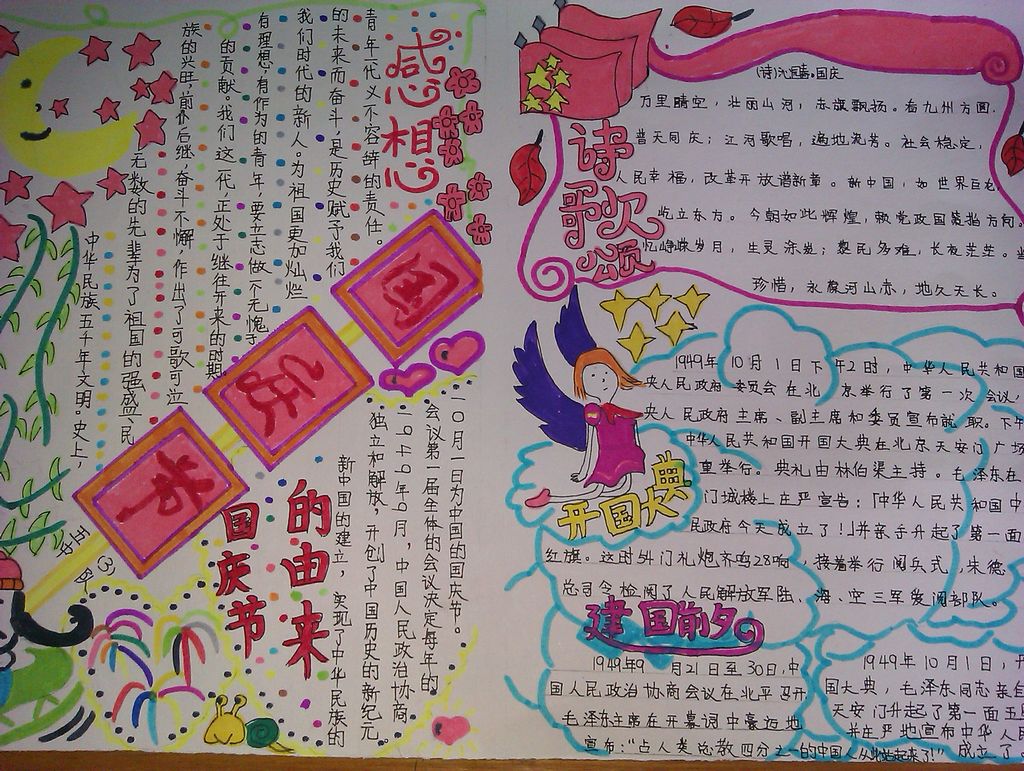 感想
中华民族五千年文明。史上,
无数的先辈为了祖国的强盛、民
族的兴旺,前仆后继,奋斗不懈,作出了可歌可泣
的贡献。我们这一代,正处于继往开来的时期。
有理想,有作为的青年,要立志做一个无愧于
我们时代的新人。为祖国更加灿烂
的未来而奋斗,是历史赋予我们
青年一代义不容辞的责任。
国
庆
节
五中队
国庆节
的由来
新中国的建立,实现了中华民族的
独立和解放,开创了中国历史的新纪元。
一九四九年9月,中国人民政治协商
会议第一届全体的会议决定每年的
一〇月一日为中国的国庆节。
诗歌颂
(诗)沁园春。国庆
万里晴空,壮丽山河,赤旗飘扬。看九州方圆,
普天同庆;江河歌唱,遍地流芳。社会稳定,
人民幸福,改革开放谱新章。新中国,如世界巨
屹立东方。今朝如此辉煌,赖党政国策指方向。
忆峥嵘岁月,生灵涂炭;黎民多难,长夜茫茫。
珍惜,永葆河山赤,地久天长。
开国大典
1949年10月1日下午2时,中华人民共和国
央人民政府委员会在北京举行了第一次会议,
央人民政府主席、副主席和委员宣布就职。下午
中华人民共和国开国大典在北京天安门广场
重举行。典礼由林伯渠主持。毛泽东在
门城楼上庄严宣告:「中华人民共和国中
民政府今天成立了!」并亲手升起了第一面
红旗。这时54门礼炮齐鸣28响,接着举行阅兵式,朱德
总司令检阅了人民解放军陆、海、空三军受阅部队。
建国前夕
1949年9月21日至30日,中
国人民政治协商会议在北平召开
毛泽东主席在开幕词中豪迈地
宣布:“占人类总数四分之一的中国人从此站起来了!”
1949年10月1日,
国大典,毛泽东同志亲自
天安门升起了第一面五
并庄严地宣布中华人民
成立了